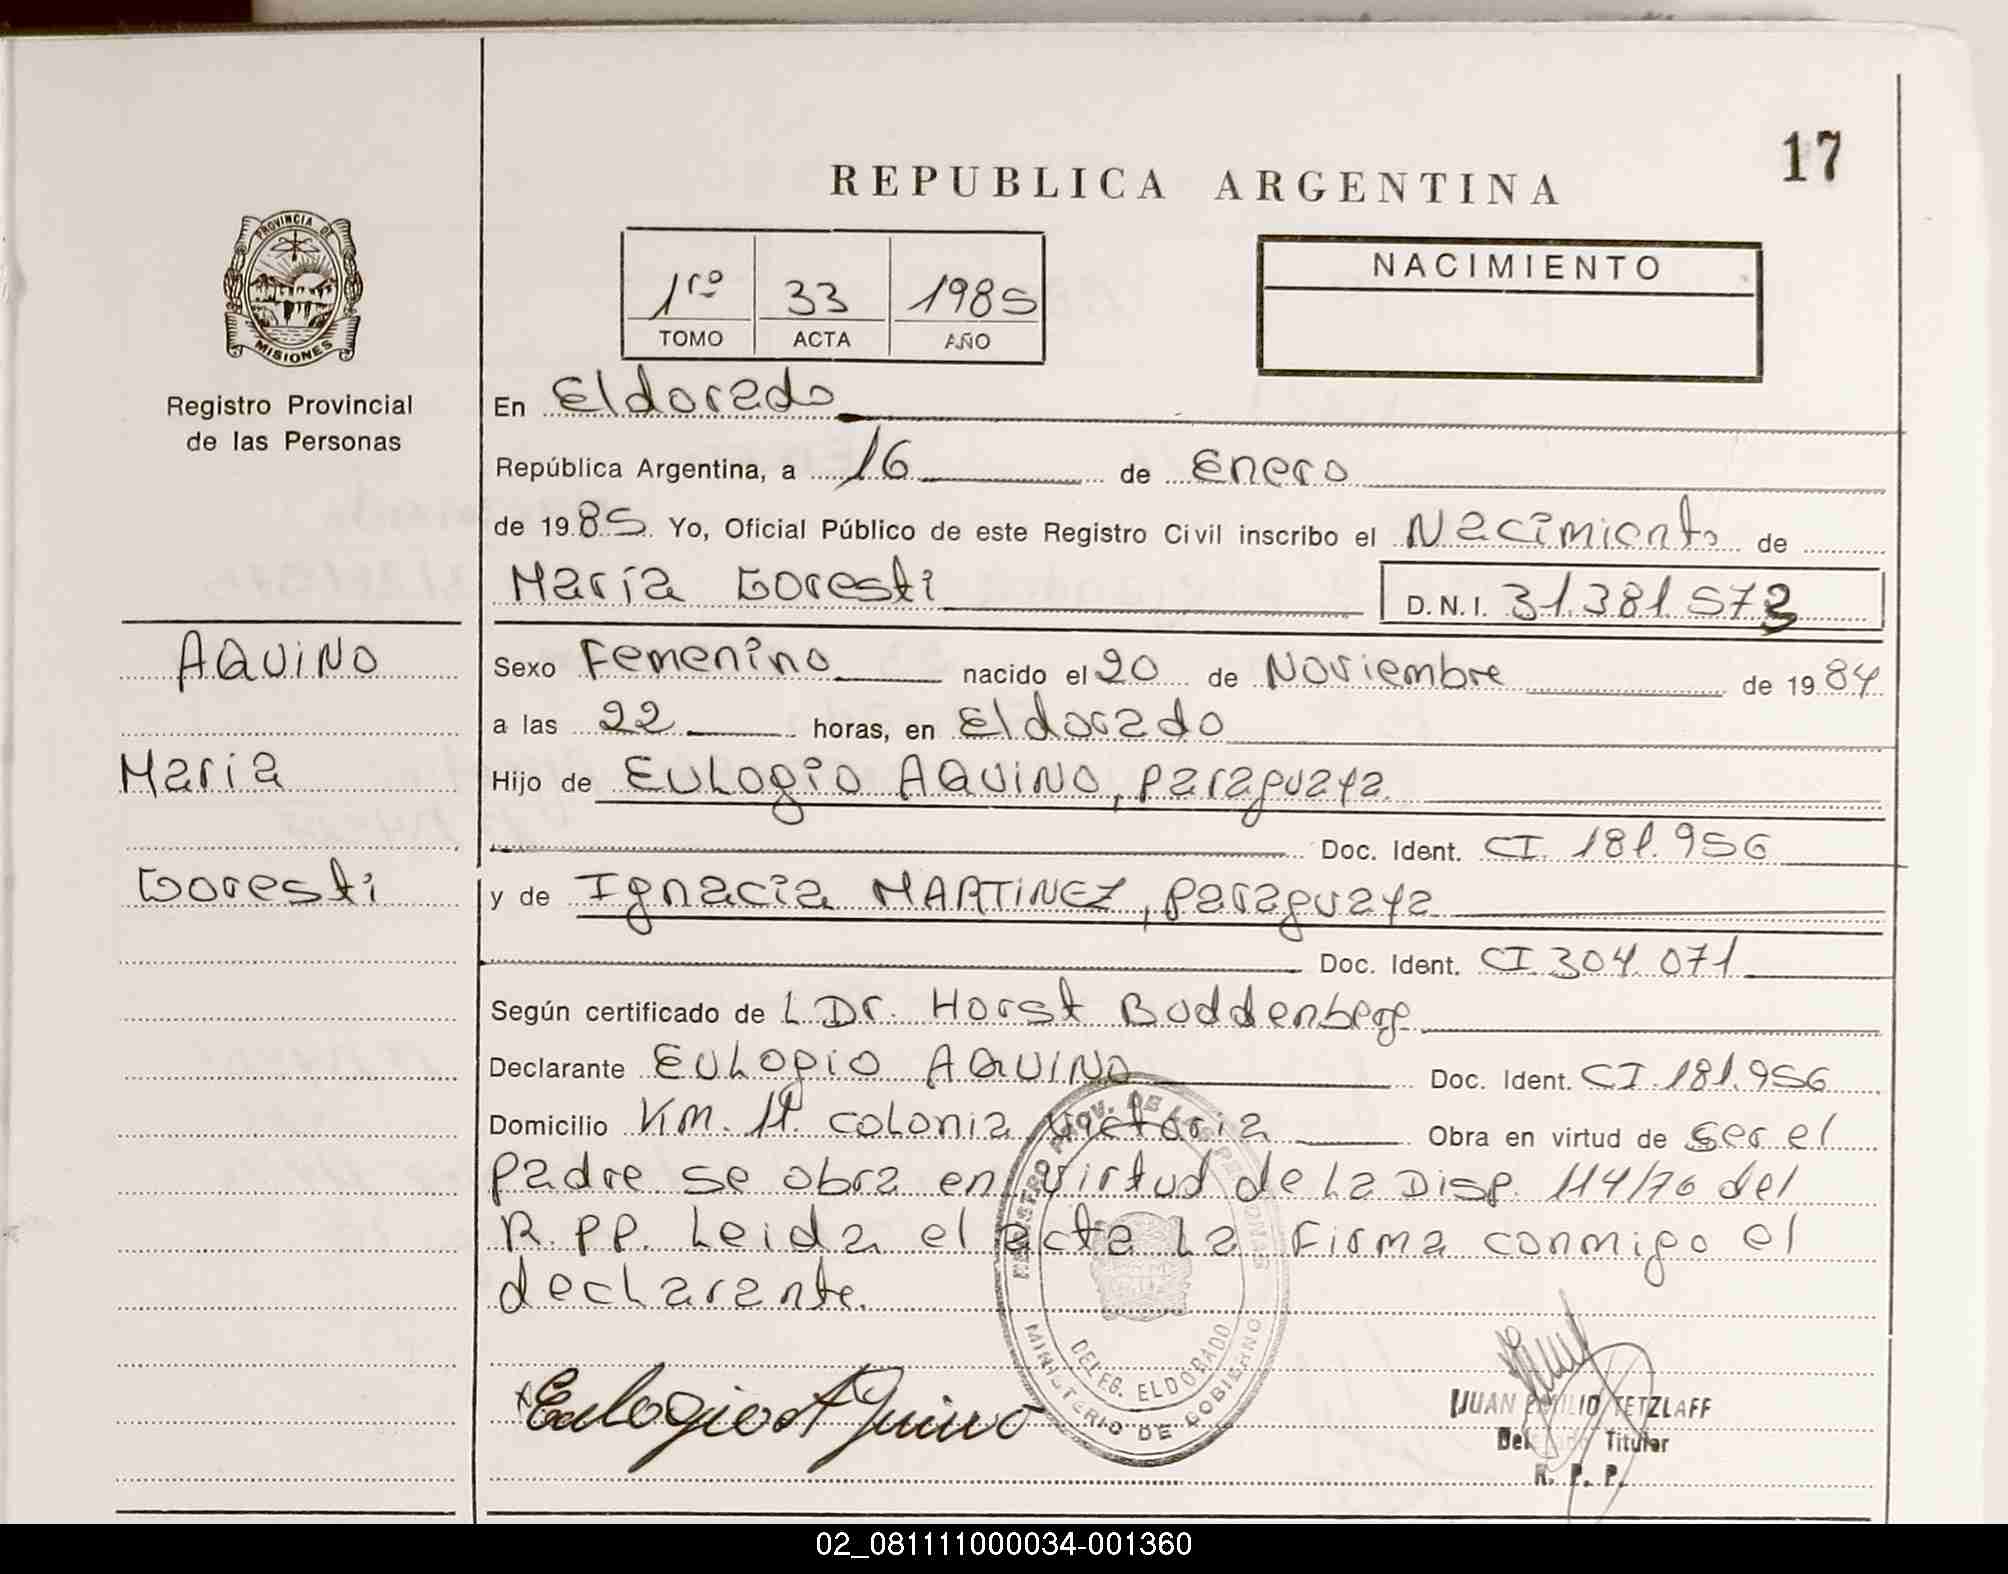 17
REPUBLICA ARGENTINA
PROVINCIA DE
MISIONES
Registro Provincial
de las Personas
1ro 33 1985
TOMO ACTA AÑO
NACIMIENTO
En Eldorado
República Argentina, a 16 de Enero
de 1985 Yo, Oficial Público de este Registro Civil inscribo el Nacimiento de
María Goresti D.N.I. 31.381.573
AQUINO
Sexo Femenino nacido el 20 de Noviembre de 1984
a las 22 horas, en Eldorado
María
Hijo de EULOGIO AQUINO, paraguaya
Doc. Ident. CI. 181.956
Goresti
y de Ignacia MARTINEZ, paraguaya
Doc. Ident. CI 304.071
Según certificado de L Dr. Horst Buddenberg
Declarante EULOGIO AQUINO Doc. Ident. CI. 181.956
Domicilio Km. 11. colonia Victoria Obra en virtud de ser el
padre se obra en virtud de la Disp. 114/76 del
R.PP. Leida el acta la firma conmigo el
declarante.
REGISTRO PROV. DE LAS PERSONAS
DELEG. ELDORADO
MINISTERIO DE GOBIERNO
Eulogio Aquino
JUAN EMILIO TETZLAFF
Delegado Titular
R. P. P.
02_081111000034-001360